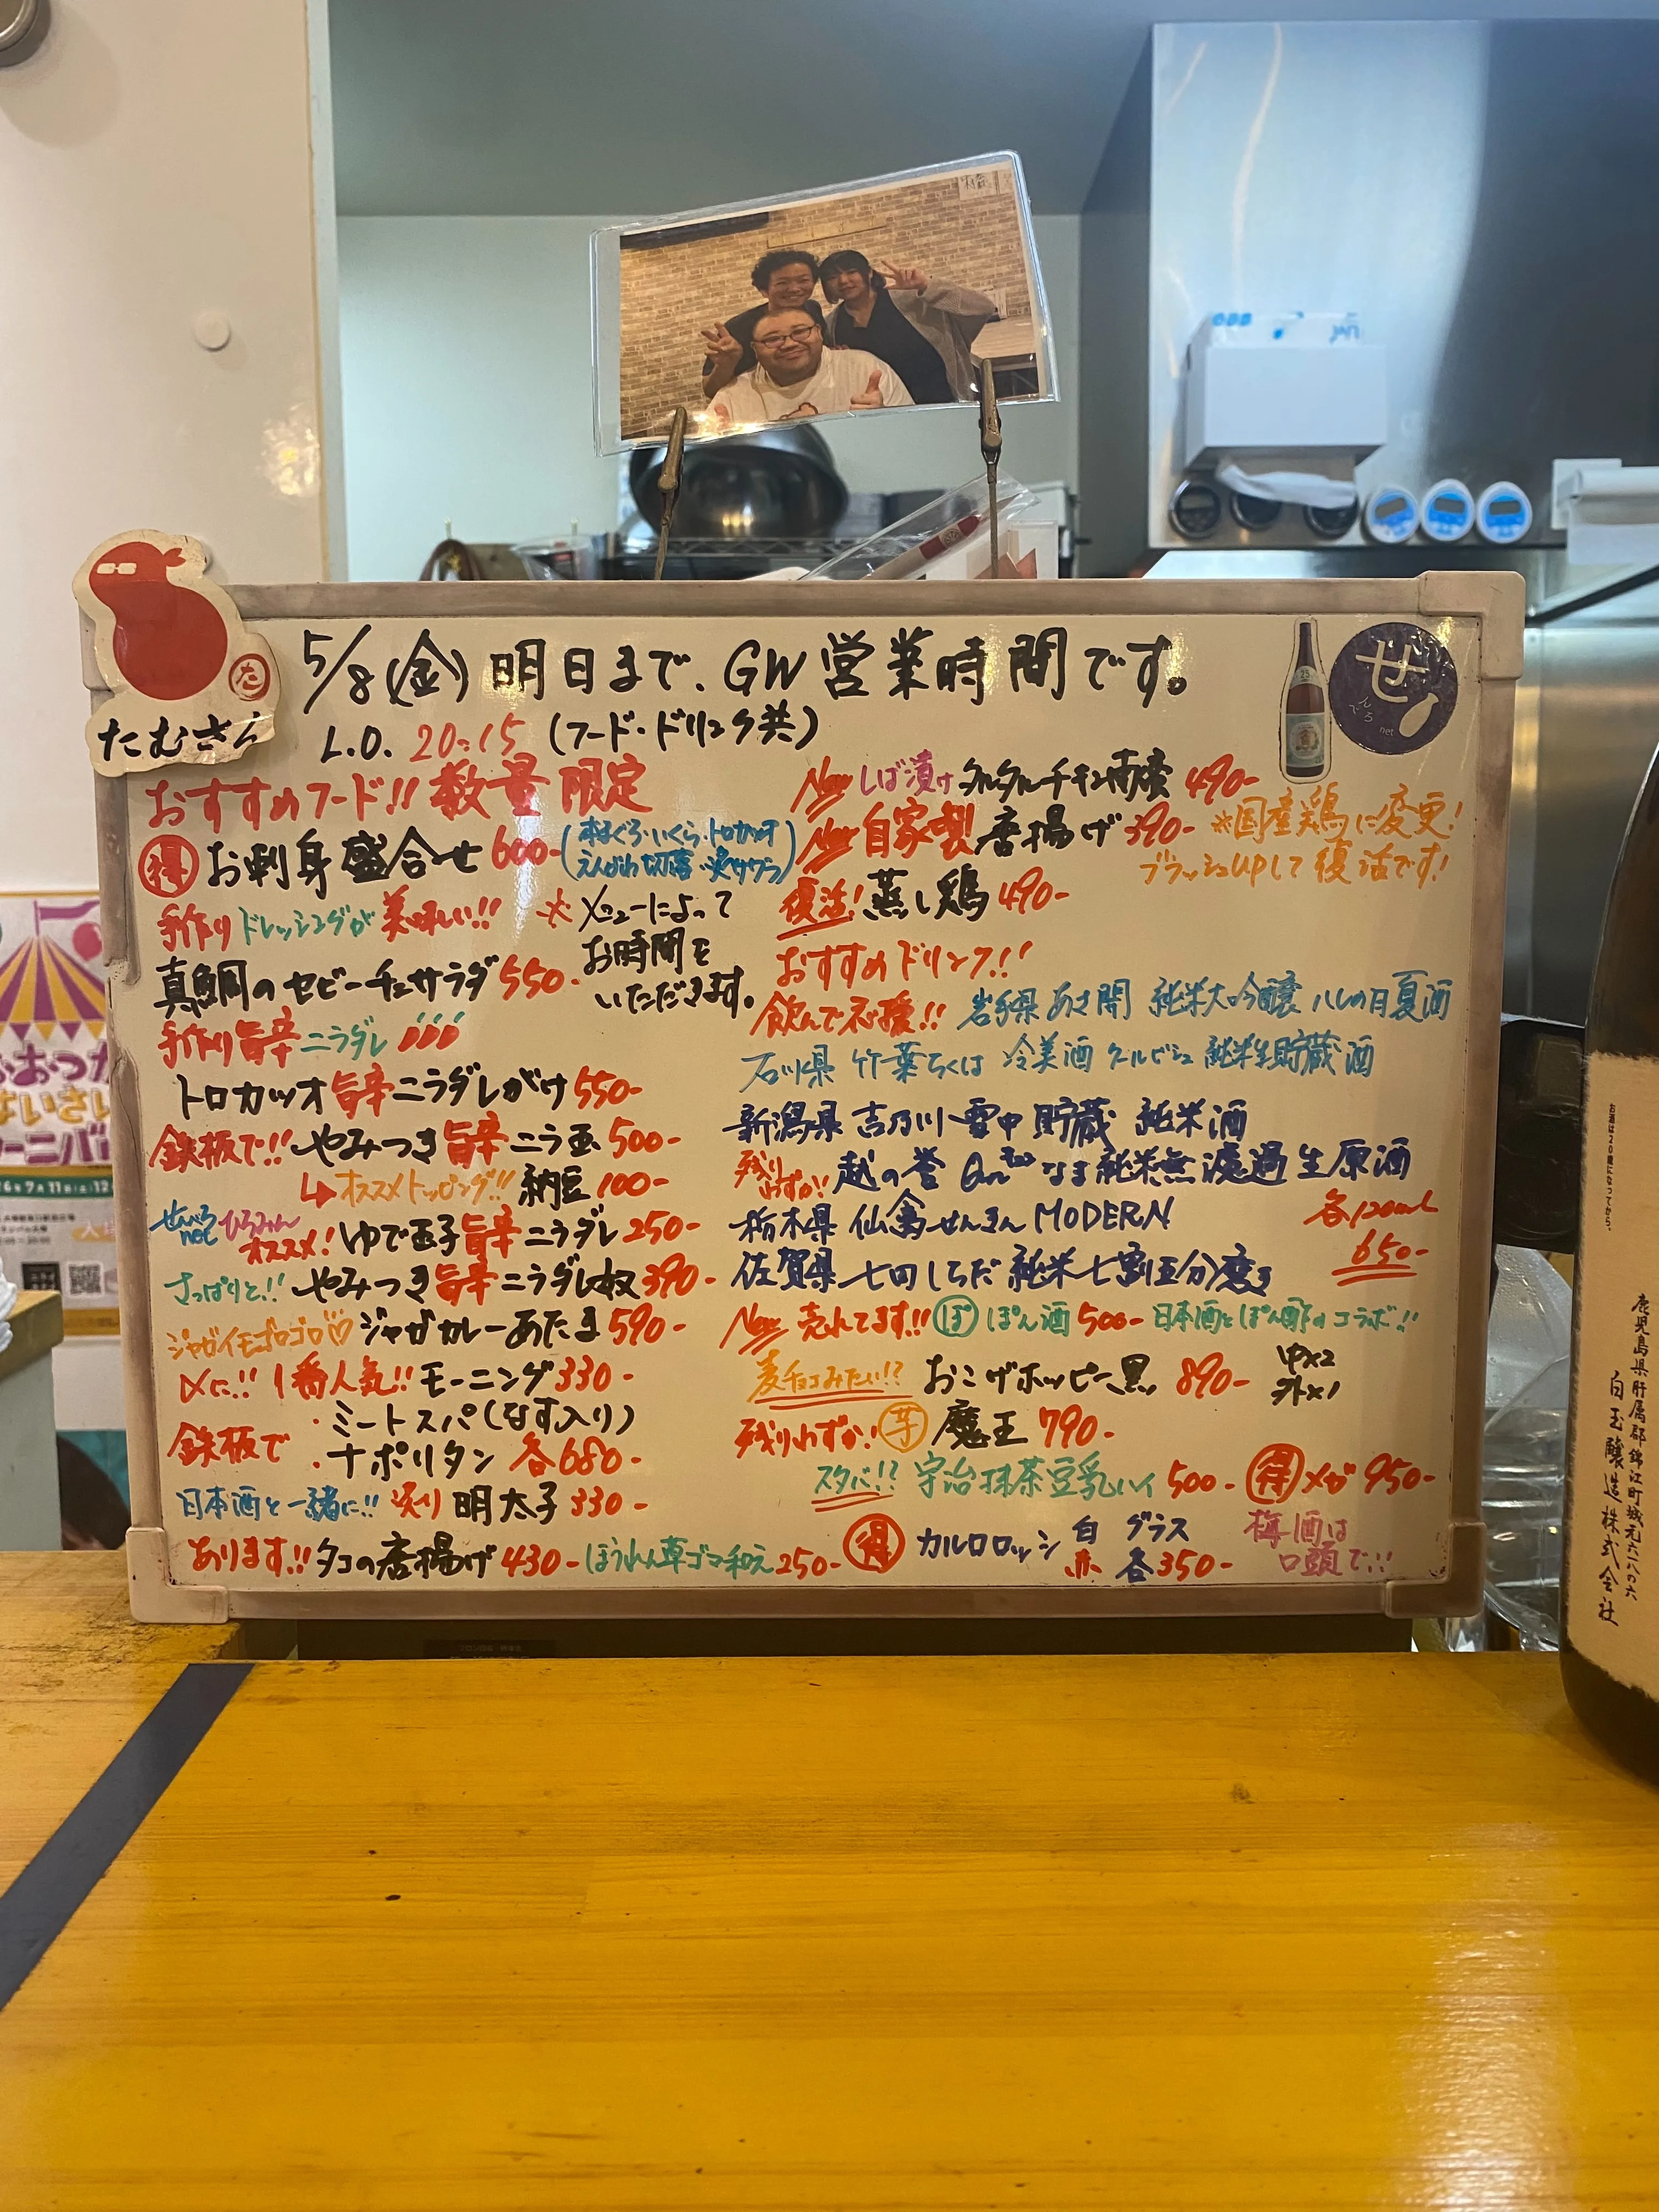 5/8(金)明日まで、GW営業時間です。
L.O. 20:15 (フード・ドリンク共)
たむさん
せ
んべろ
net
おすすめフード!! 数量限定
得 お刺身盛合せ 600-
(本まぐろ・いくら・トロカツオ
えんがわ切落・炙サワラ)
手作りドレッシングが美味しい!!
真鯛のセビーチェサラダ 550-
※メニューによって
お時間を
いただきます。
手作り旨辛ニラダレ
トロカツオ旨辛ニラダレがけ 550-
鉄板で!! やみつき旨辛ニラ玉 500-
オススメトッピング!! 納豆 100-
せんべろnet ひろみん
オススメ! ゆで玉子旨辛ニラダレ 250-
さっぱりと!! やみつき旨辛ニラダレ奴 390-
ジャガイモゴロゴロ♡♡ ジャガカレーあたま 590-
〆に!! 1番人気!! モーニング 330-
鉄板で
・ミートスパ(なす入り)
・ナポリタン 各680-
日本酒と一緒に!! 炙り明太子 330-
あります!! タコの唐揚げ 430- ほうれん草ゴマ和え 250-
New しば漬けタルタルチキン南蛮 490-
New 自家製唐揚げ 390- ※国産鶏に変更!
ブラッシュupして復活です!
復活! 蒸し鶏 490-
おすすめドリンク!!
飲んで応援!! 岩手県 あさ開 純米大吟醸 八しの日夏酒
石川県 竹葉ちくは 冷美酒 クールビシュ 純米生貯蔵酒
新潟県 吉乃川 雪中貯蔵 純米酒
残りわずか!! 越の誉 なま純米無濾過生原酒
栃木県 仙禽せんきん MODERN
佐賀県 七田しちだ 純米七割五分磨き
各120ml
650-
New 売れてます!! ぽ ぽん酒 500- 日本酒とぽん酢のコラボ!!
麦チョコみたい!? おこげホッピー黒 890- 中×2
外×1
残りわずか! 芋 魔王 790-
スタバ!? 宇治抹茶豆乳ハイ 500- 得 メガ 950-
得 カルロロッシ 白 グラス
赤 各350-
梅酒は
口頭で!!
お酒は20歳になってから。
鹿児島県肝属郡錦江町城元六八〇六
白玉醸造株式会社